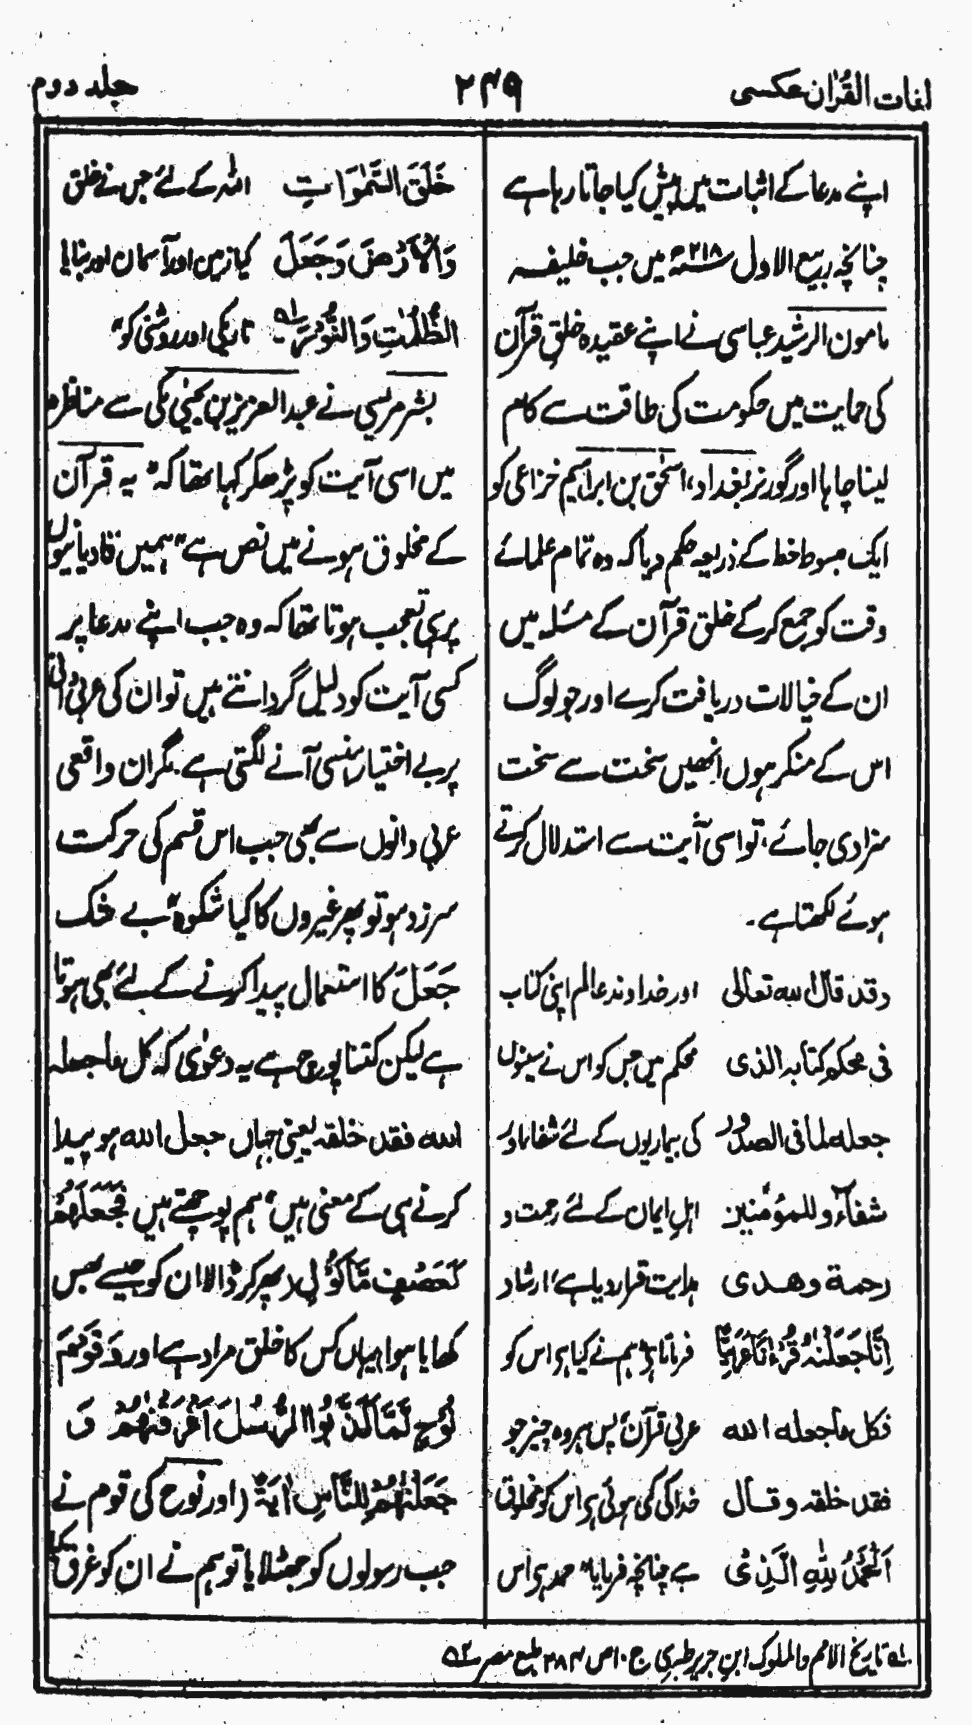 لغات القرآن عکسی
۲۴۹
جلد دوم
اپنے مدعا کے اثبات میں پیش کیا جاتا رہا ہے
چنانچہ ربیع الاول ۲۱۸ھ میں جب خلیفہ
مامون الرشید عباسی نے اپنے عقیدہ خلق قرآن
کی حمایت میں حکومت کی طاقت سے کام
لینا چاہا اور گورنر بغداد، اسحٰق بن ابراہیم خزاعی کو
ایک مبسوط خط کے ذریعہ حکم دیا کہ وہ تمام علمائے
وقت کو جمع کر کے خلق قرآن کے مسئلہ میں
ان کے خیالات دریافت کرے اور جو لوگ
اس کے منکر ہوں انھیں سخت سے سخت
سزا دی جائے، تو اسی آیت سے استدلال کرتے
ہوئے لکھتا ہے۔
وقد قال الله تعالى اور خداوند عالم اپنی کتاب
فی محکم کتابہ الذی محکم میں جس کو اس نے سینوں
جعله لما فی الصدور کی بیماریوں کے لئے شفا اور
شفاءً وللمؤمنین اہل ایمان کے لئے رحمت و
رحمة وهدی ہدایت قرار دیا ہے، ارشاد
اِنَّا جَعَلْنٰهُ قُرْءَانًا عَرَبِيًّا فرماتا ہے ہم نے کیا ہے اس کو
فکل ما جعله الله عربی قرآن، پس ہر وہ چیز جو
فقد خلقه وقال خدا کی کی ہوئی ہے اس کو مخلوق
اَلْحَمْدُ لِلّٰهِ الَّذِيْ ہے چنانچہ فرمایا "حمد ہے اس
خَلَقَ السَّمٰوَاتِ اللہ کے لئے جس نے خلق
وَالْاَرْضَ وَجَعَلَ کیا زمین اور آسمان اور بنایا
الظُّلُمٰتِ وَالنُّوْرَ ۱؎ تاریکی اور روشنی کو"
بشر مریسی نے عبد العزیز بن یحییٰ مکی سے مناظرہ
میں اسی آیت کو پڑھ کر کہا تھا کہ "یہ قرآن
کے مخلوق ہونے میں نص ہے" ہمیں قادیانیوں
پر ہی تعجب ہوتا تھا کہ وہ جب اپنے مدعا پر
کسی آیت کو دلیل گردانتے ہیں تو ان کی عربی دانی
پر بے اختیار ہنسی آنے لگتی ہے۔ مگر ان واقعی
عربی دانوں سے بھی جب اس قسم کی حرکت
سرزد ہو تو پھر غیروں کا کیا شکوہ" بے شک
جَعَلَ کا استعمال پیدا کرنے کے لئے بھی ہوتا
ہے لیکن کتنا پوچ ہے یہ دعوٰی کہ کل ما جعله
الله فقد خلقه یعنی جہاں جعل الله ہو پیدا
کرنے ہی کے معنی ہیں" ہم پوچھتے ہیں فَجَعَلَهُمْ
كَعَصْفٍ مَّأْكُوْلٍ (پھر کر ڈالا ان کو جیسے بھس
کھایا ہوا) یہاں کس کا خلق مراد ہے اور وَقَوْمَ
نُوْحٍ لَّمَّا كَذَّبُوا الرُّسُلَ اَغْرَقْنٰهُمْ وَ
جَعَلْنٰهُمْ لِلنَّاسِ اٰيَةً (اور نوح کی قوم نے
جب رسولوں کو جھٹلایا تو ہم نے ان کو غرق کیا
۱؎ تاریخ الامم والملوک ابن جریر طبری ج ۱۰ ص ۲۸۴ طبع مصر